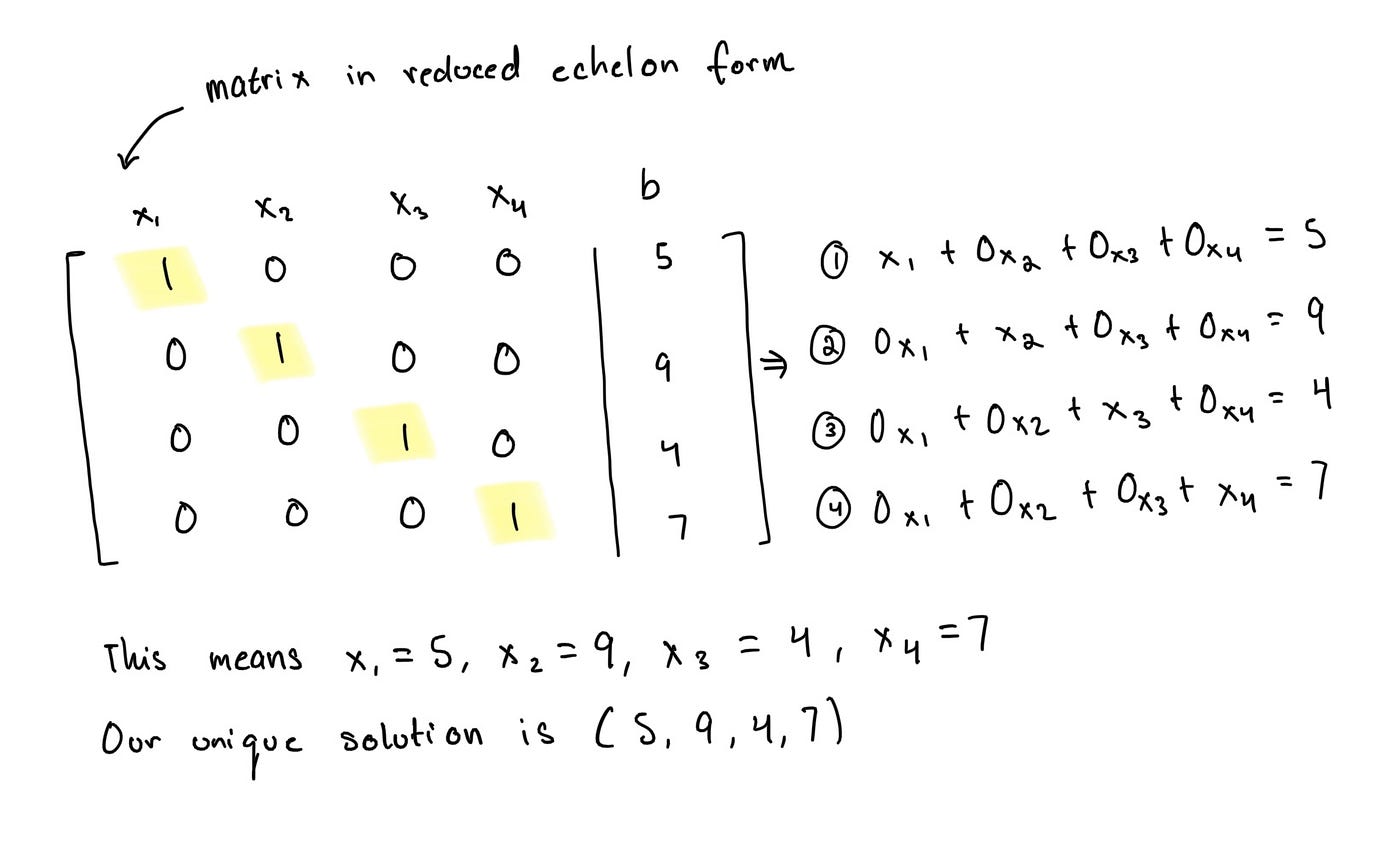 matrix in reduced echelon form
x₁ x₂ x₃ x₄ b
1 0 0 0 | 5 ⇒ ① x₁ + 0x₂ + 0x₃ + 0x₄ = 5
0 1 0 0 | 9 ② 0x₁ + x₂ + 0x₃ + 0x₄ = 9
0 0 1 0 | 4 ③ 0x₁ + 0x₂ + x₃ + 0x₄ = 4
0 0 0 1 | 7 ④ 0x₁ + 0x₂ + 0x₃ + x₄ = 7
This means x₁ = 5, x₂ = 9, x₃ = 4, x₄ = 7
Our unique solution is (5, 9, 4, 7)